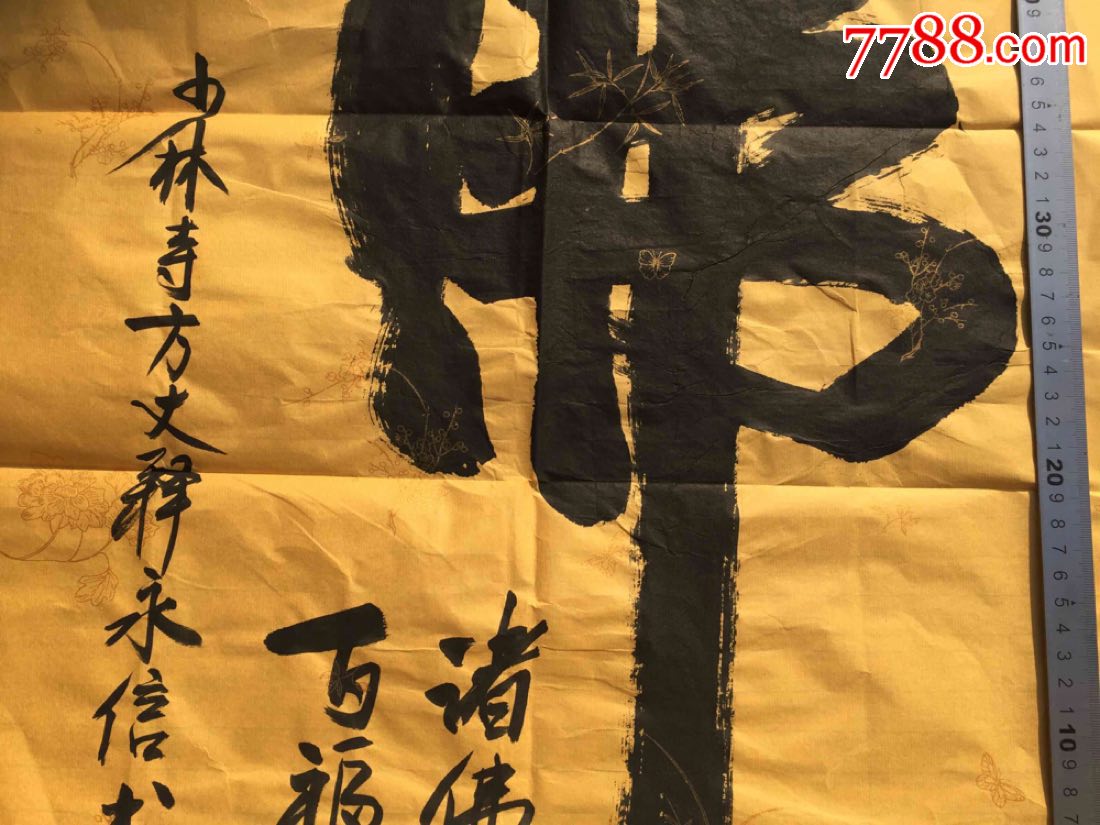 7788.com
佛
诸佛
百福
少林寺方丈释永信书
9 6 5 4 3 2 1 30 9 8 7 6 5 4 3 2 1 20 9 8 7 6 5 4 3 2 1 10 9 8 7